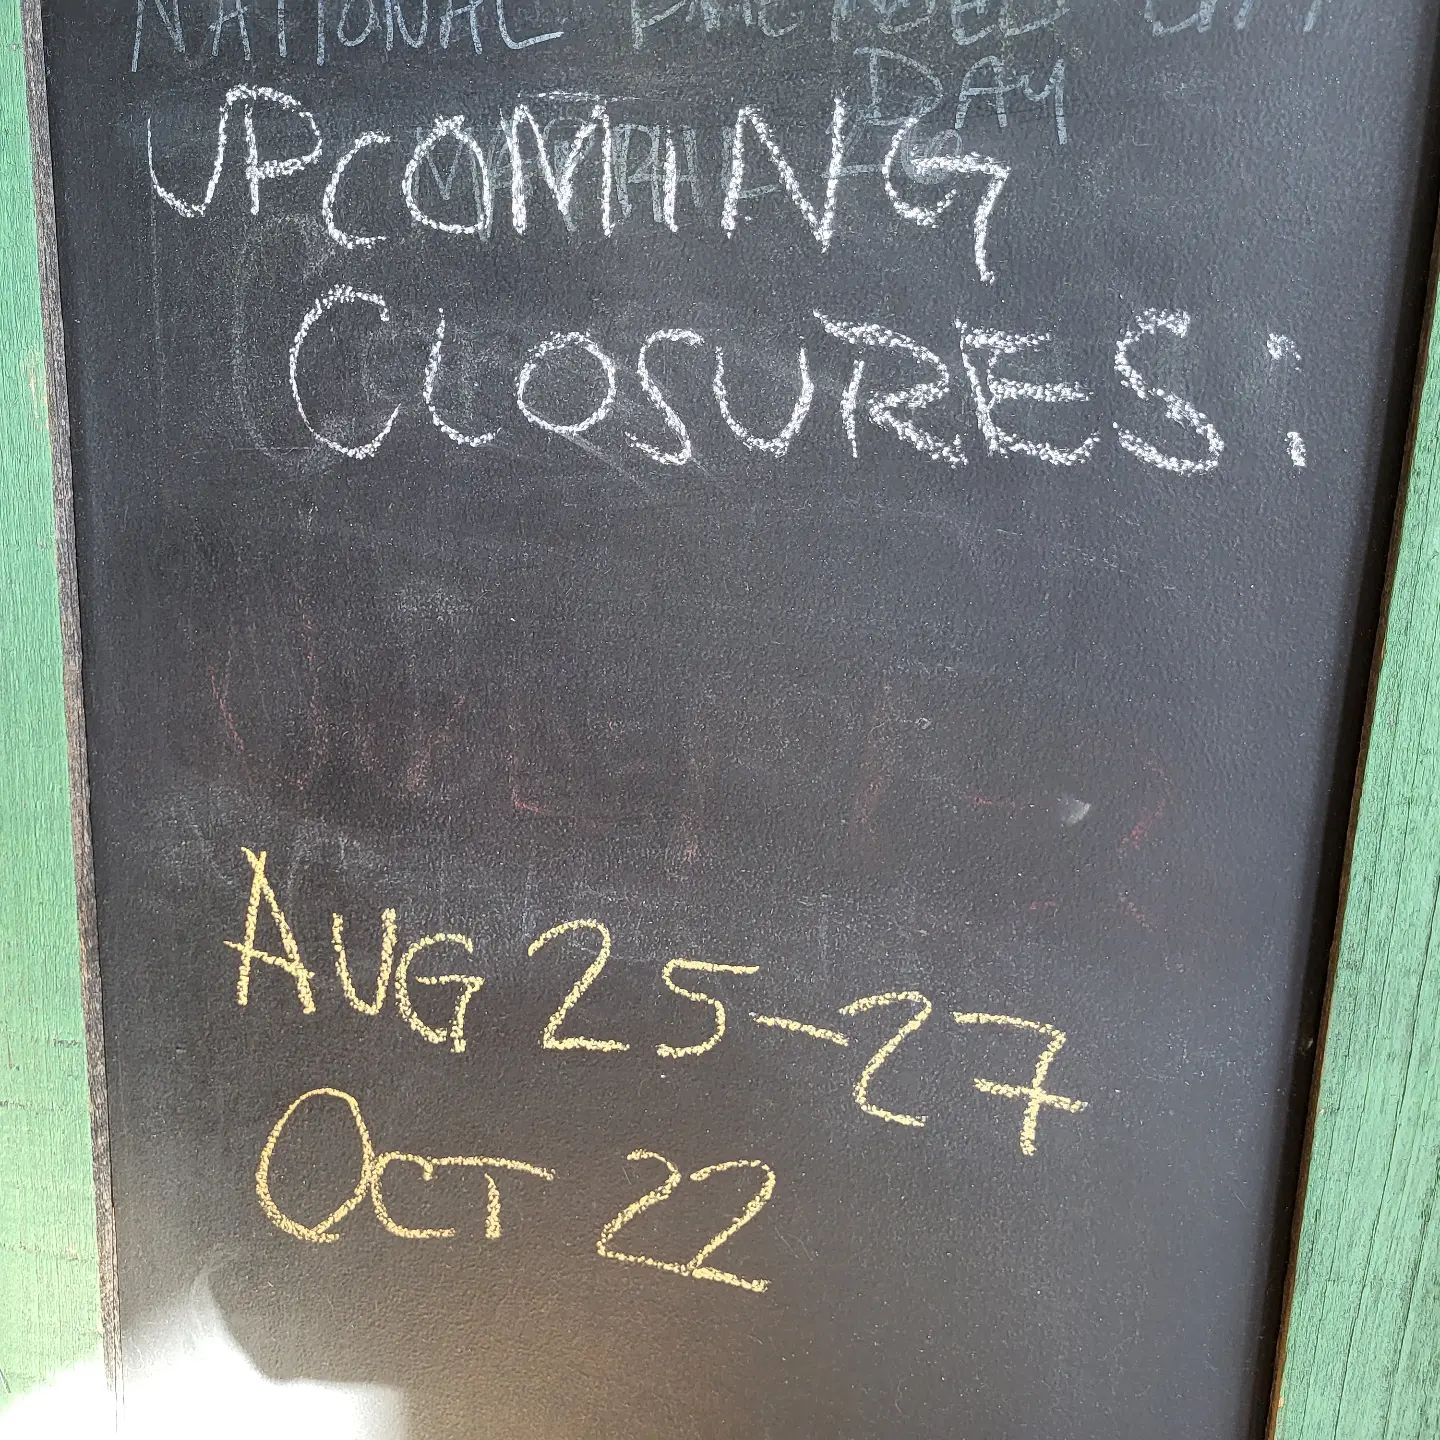 NATIONAL
DAY
UPCOMING
CLOSURES:
AUG 25-27
OCT 22